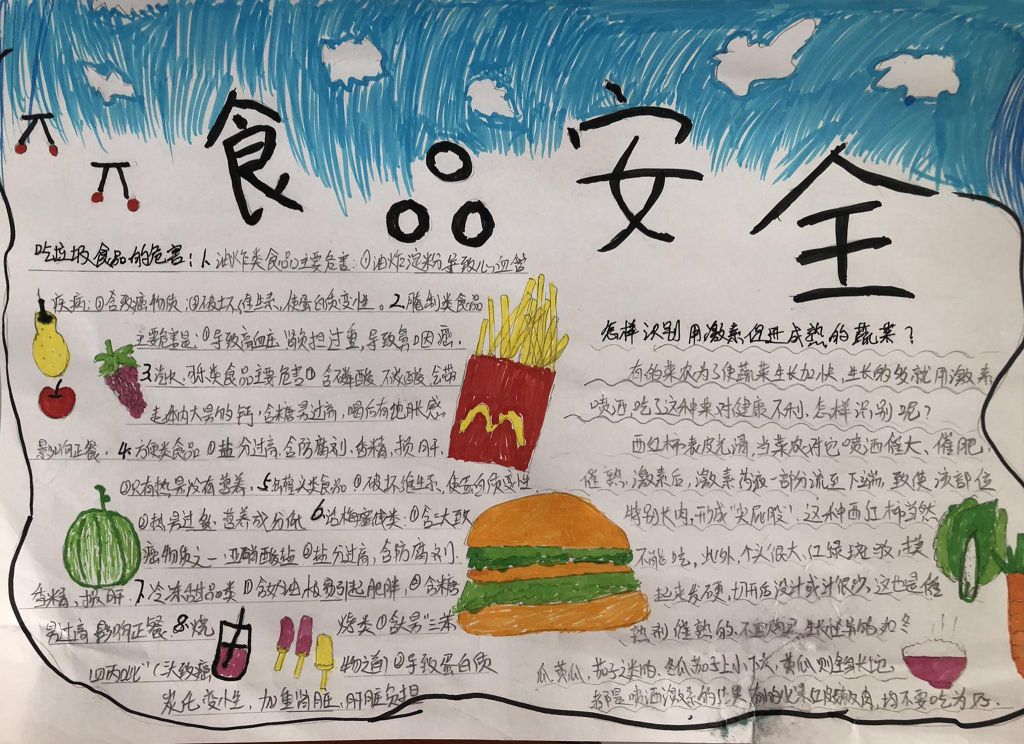 食品安全
吃垃圾食品的危害：1、油炸类食品主要危害：①油炸淀粉导致心血管
疾病：②含致癌物质③破坏维生素，使蛋白质变性。2腌制类食品
主要危害是：①导致高血压肾负担过重，导致鼻咽癌，
3.汽水、可乐类食品主要危害①含磷酸、碳酸，会带
走体内大量的钙，含糖量过高，喝后有饱胀感
影响正餐。4.方便类食品①盐分过高，含防腐剂，香精，损肝，
②只有热量没有营养，5罐头类食品①破坏维生素，使蛋白质变性
②热量过多，营养成分低 6话梅蜜饯类：①含三大致
癌物质之一，亚硝酸盐②盐分过高，含防腐剂、
香精，损肝 7冷冻甜品类①含奶油极易引起肥胖，②含糖
量过高影响正餐 8烧烤类①含大量"三苯
四丙吡"（三大致癌物道）②导致蛋白质
炭化变性，加重肾脏，肝脏负担
怎样识别用激素促进成熟的蔬菜？
有的菜农为了使蔬菜生长加快，生长的多就用激素
喷洒，吃了这种菜对健康不利，怎样识别呢？
西红柿表皮光滑，当菜农对它喷洒催大、催肥，
催熟，激素后，激素药液一部分流至下端，致使该部位
特别长肉，形成"尖屁股"，这种西红柿当然
不能吃，此外，个头很大，红绿斑驳，摸
起来发硬，切开后没汁或汁很少，这也是催
熟剂催熟的，不要购买，生长异常的，如冬
瓜，黄瓜，茄子之类的，冬瓜茄子上小下大，黄瓜则
都是喷洒激素的结果，均不要吃为好．